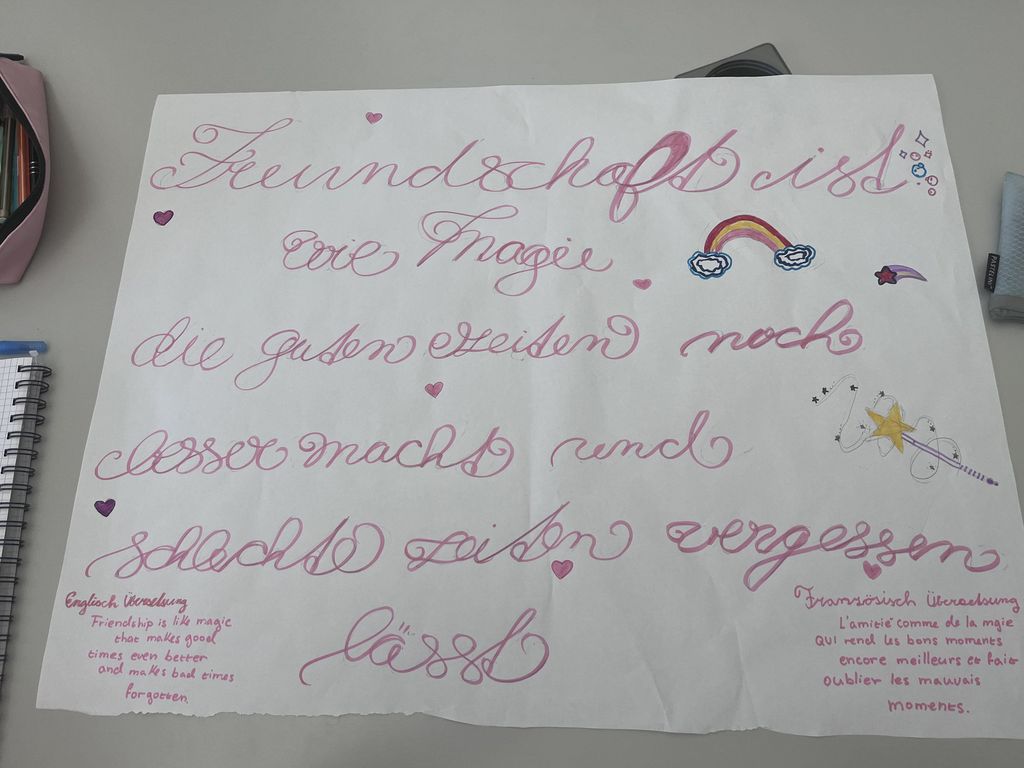 Freundschaft ist
wie Magie
die guten Zeiten noch
besser macht und
schlechte zeiten vergessen
lässt
Englisch Übersetzung
Friendship is like magic
that makes good
times even better
and makes bad times
forgotten.
Französisch Übersetsung
L'amitié comme de la mgie
QUI rend les bons moments
encore meilleurs et fait
oublier les mauvais
moments.